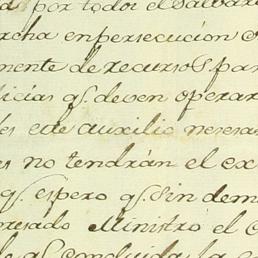 por todos el Salvar
rcha en persecución
mente de recursos par
licias qs. deven operar
este auxilio nesesa
es no tendrán el ex
qs. espero qs. sin dem
presado Ministro el
qs. conducida la